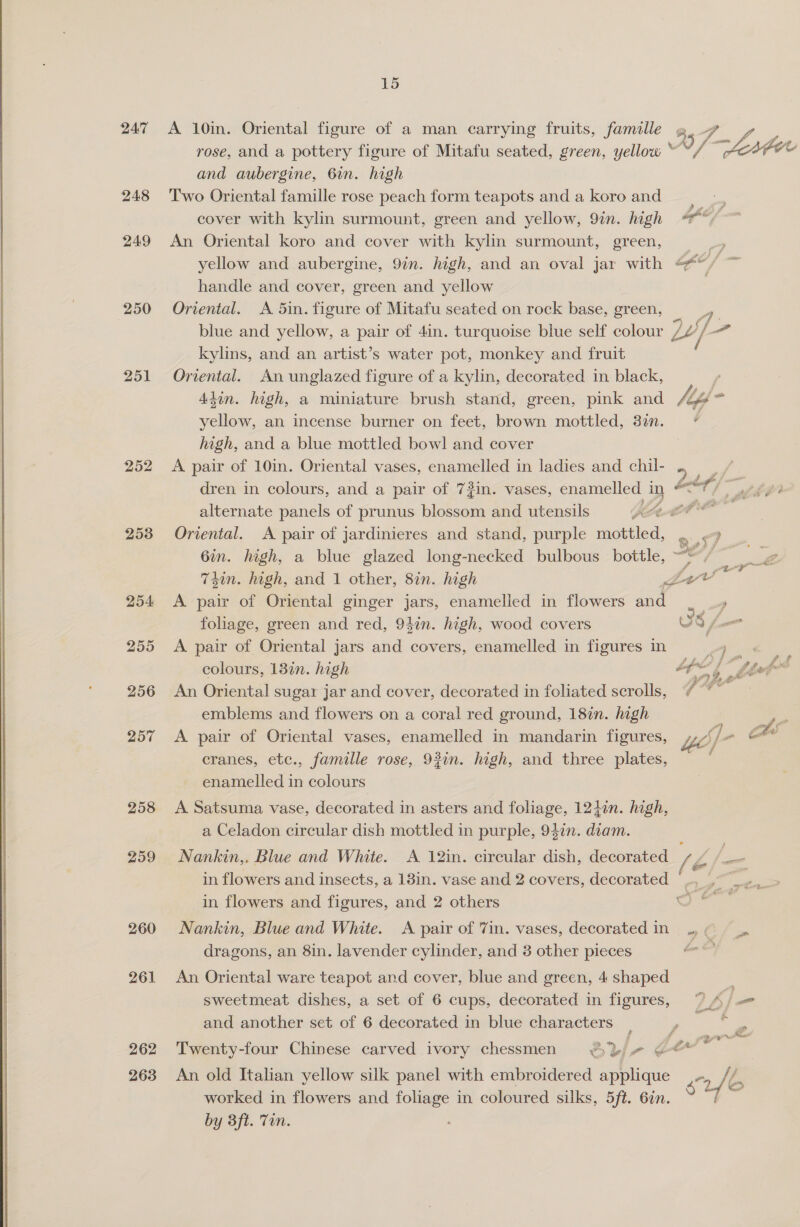 15
247 A 10in. Oriental figure of a man carrying fruits, famille
rose, and a pottery figure of Mitafu seated, green, yellow
and aubergine, 6in. high
248 Two Oriental famille rose peach form teapots and a koro and
cover with kylin surmount, green and yellow, 9in. high
249 An Oriental koro and cover with kylin surmount, green,
yellow and aubergine, 9in. high, and an oval jar with
handle and cover, green and yellow
250 Oriental. A 5in. figure of Mitafu seated on rock base, green,
blue and yellow, a pair of 4in. turquoise blue self colour
kylins, and an artist's water pot, monkey and fruit
251 Oriental. An unglazed figure of a kylin, decorated in black,
4½in. high, a miniature brush stand, green, pink and
yellow, an incense burner on feet, brown mottled, 3in.
high, and a blue mottled bowl and cover
252 A pair of 10in. Oriental vases, enamelled in ladies and chil-
dren in colours, and a pair of 7¾in. vases, enamelled in
alternate panels of prunus blossom and utensils
253 Oriental. A pair of jardinieres and stand, purple mottled,
6in. high, a blue glazed long-necked bulbous bottle,
7½in. high, and 1 other, 8in. high
254 A pair of Oriental ginger jars, enamelled in flowers and
foliage, green and red, 9½in. high, wood covers
255 A pair of Oriental jars and covers, enamelled in figures in
colours, 13in. high
256 An Oriental sugar jar and cover, decorated in foliated scrolls,
emblems and flowers on a coral red ground, 18in. high
257 A pair of Oriental vases, enamelled in mandarin figures,
cranes, etc., famille rose, 9¾in. high, and three plates,
enamelled in colours
258 A Satsuma vase, decorated in asters and foliage, 12½in. high,
a Celadon circular dish mottled in purple, 9½in. diam.
259 Nankin,. Blue and White. A 12in. circular dish, decorated
in flowers and insects, a 13in. vase and 2 covers, decorated
in flowers and figures, and 2 others
260 Nankin, Blue and White. A pair of 7in. vases, decorated in
dragons, an 8in. lavender cylinder, and 3 other pieces
261 An Oriental ware teapot and cover, blue and green, 4 shaped
sweetmeat dishes, a set of 6 cups, decorated in figures,
and another set of 6 decorated in blue characters
262 Twenty-four Chinese carved ivory chessmen
263 An old Italian yellow silk panel with embroidered applique
worked in flowers and foliage in coloured silks, 5ft. 6in.
by 3ft. 7in.